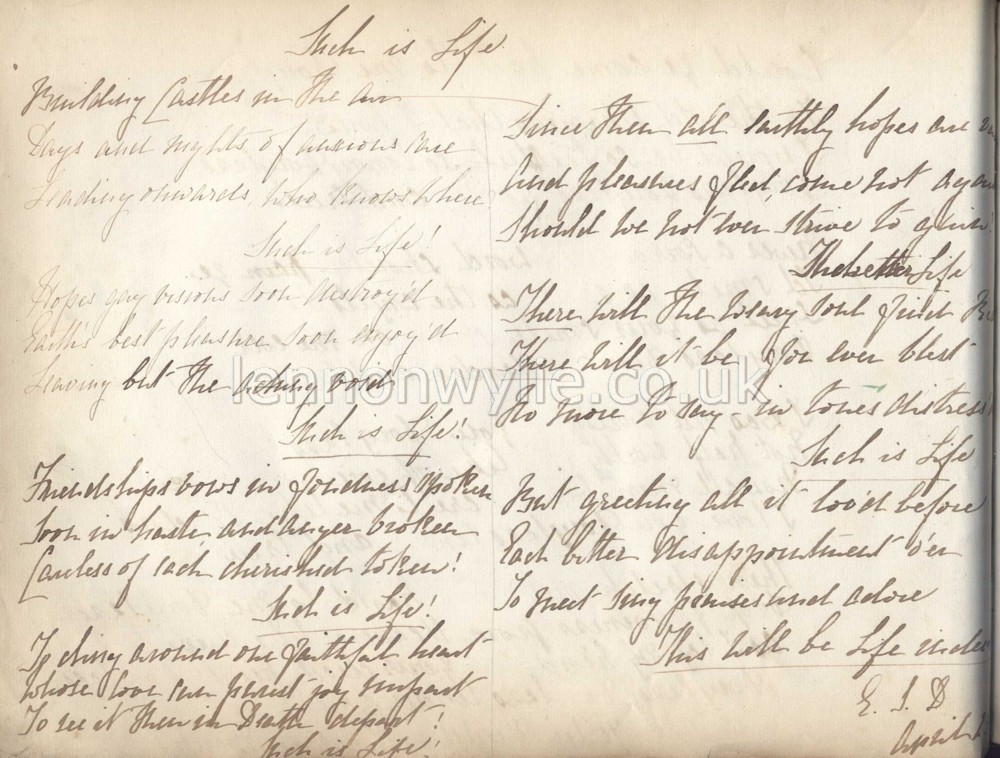 Such is Life
Building Castles in the air
Days and nights of anxious care
Leading onwards, who knows where
Such is Life!
Hopes gay visions soon destroy'd
Earth's best pleasure soon enjoy'd
Leaving but the aching void
Such is Life!
Friendships vows in fondness spoken
Soon in haste and anger broken
Careless of each cherished token!
Such is Life!
To cling around one faithful heart
whose love can purest joy impart
To see it then in Death depart!
Such is Life!
Since then all earthly hopes are
And pleasures fled, come not again
Should we not ever strive to gain
The better Life
There will the weary soul find
There will it be for ever blest
No more to say - in tones distress
Such is Life
But greeting all it lov'd before
Each bitter disappointment o'er
To meet sing praises and adore
This will be Life indeed
E. I. D
April
lennonwylie.co.uk